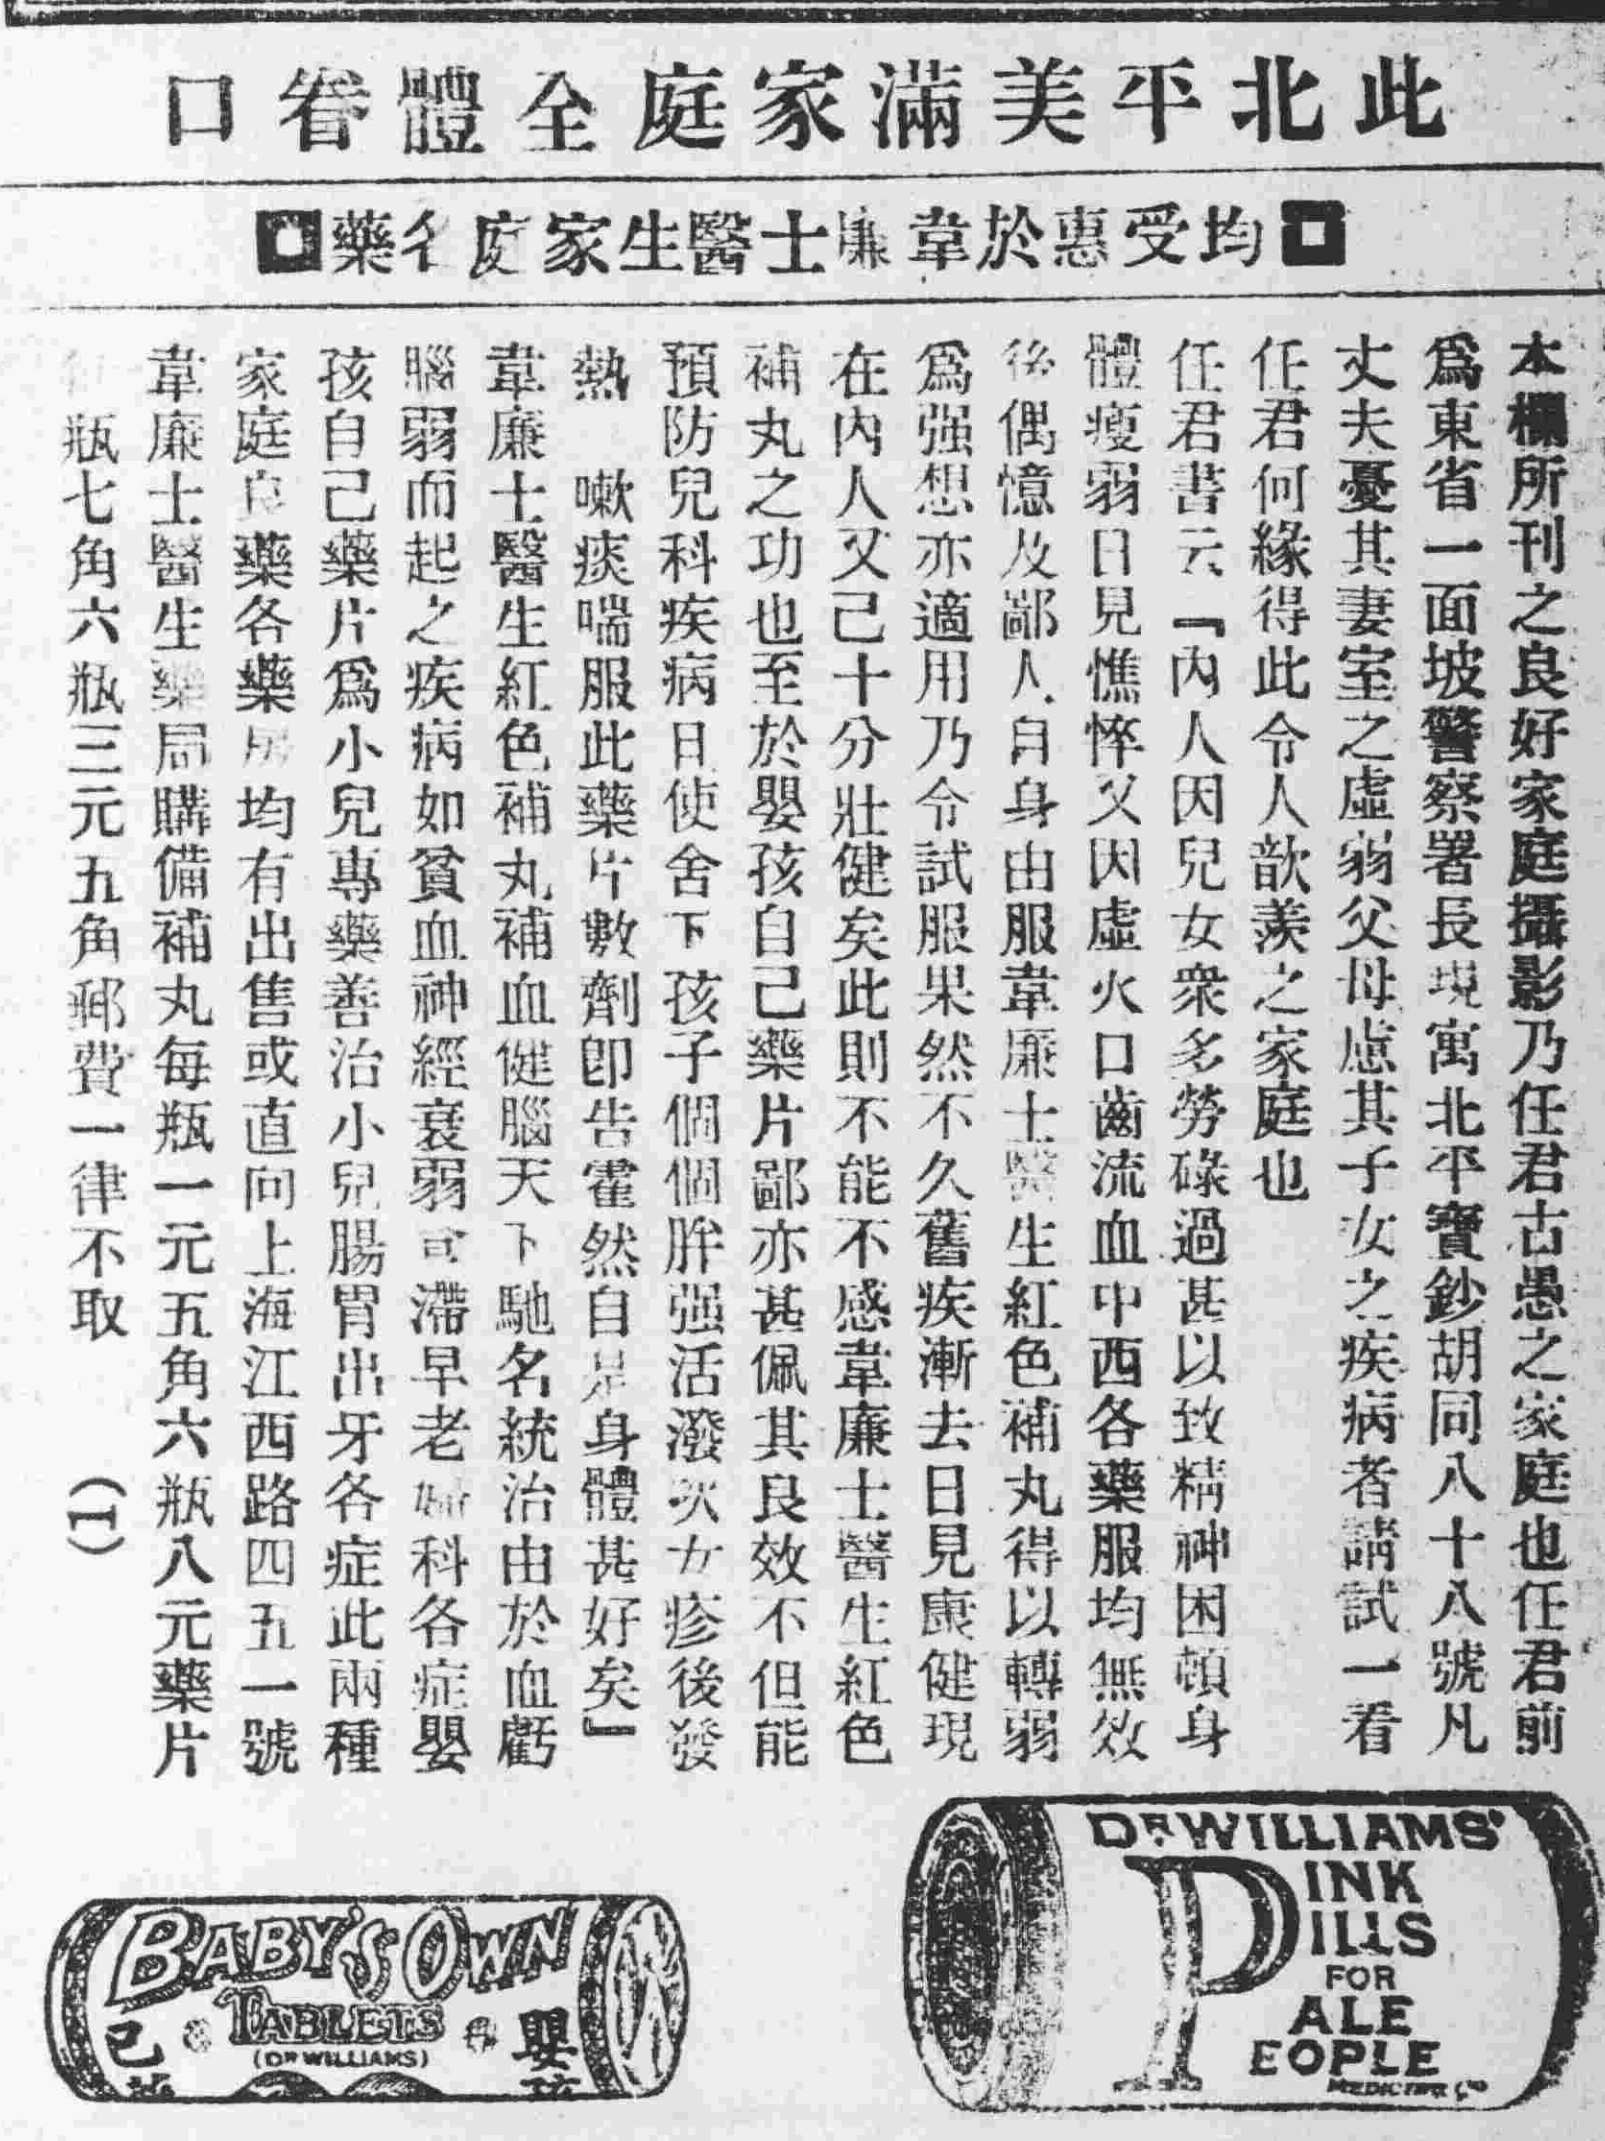 此北平美滿家庭全體眷口
均受惠於韋廉士醫生家庭名藥
本欄所刊之良好家庭攝影乃任君古愚之家庭也任君前
爲東省一面坡警察署長現寓北平寶鈔胡同八十八號凡
丈夫憂其妻室之虛弱父母慮其子女之疾病者請試一看
任君何緣得此令人歆羨之家庭也
任君書云『內人因兒女衆多勞碌過甚以致精神困頓身
體瘦弱日見憔悴又因虛火口齒流血中西各藥服均無效
後偶憶及鄙人自身由服韋廉士醫生紅色補丸得以轉弱
爲强想亦適用乃令試服果然不久舊疾漸去日見康健現
在內人又已十分壯健矣此則不能不感韋廉士醫生紅色
補丸之功也至於嬰孩自己藥片鄙亦甚佩其良效不但能
預防兒科疾病且使舍下孩子個個胖强活潑次女疹後發
熱 嗽痰喘服此藥片數劑卽告霍然自是身體甚好矣』
韋廉士醫生紅色補丸補血健腦天下馳名統治由於血虧
腦弱而起之疾病如貧血神經衰弱 滯早老婦科各症嬰
孩自己藥片爲小兒專藥善治小兒腸胃出牙各症此兩種
家庭良藥各藥房均有出售或直向上海江西路四五一號
韋廉士醫生藥局購備補丸每瓶一元五角六瓶八元藥片
瓶七角六瓶三元五角郵費一律不取 (I)
DR WILLIAMS'
PINK
PILLS
FOR
PALE
PEOPLE
MEDICINE Co
BABY'S OWN
TABLETS
(DR WILLIAMS)
嬰孩
己